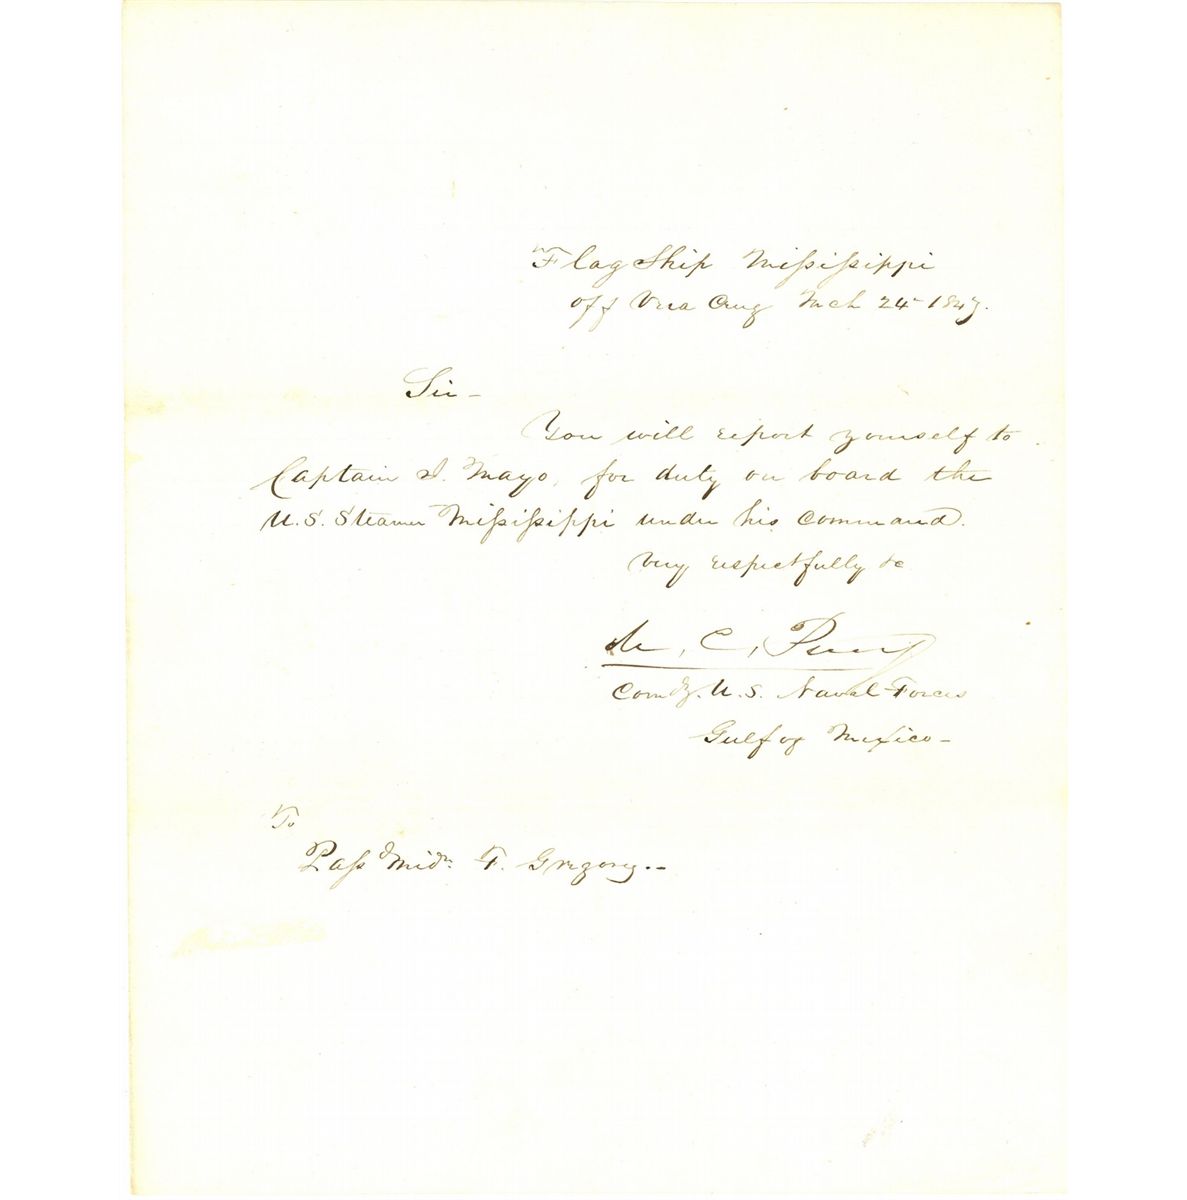 Flag Ship Mississippi
off Vera Cruz Mch 24 - 1847.
Sir -
You will report yourself to
Captain I. Mayo, for duty on board the
U.S. Steamer Mississippi under his command.
Very respectfully &c
M. C. Perry
Comdg. U.S. Naval Forces
Gulf of Mexico -
To
Pass d Midn. F. Gregory. --